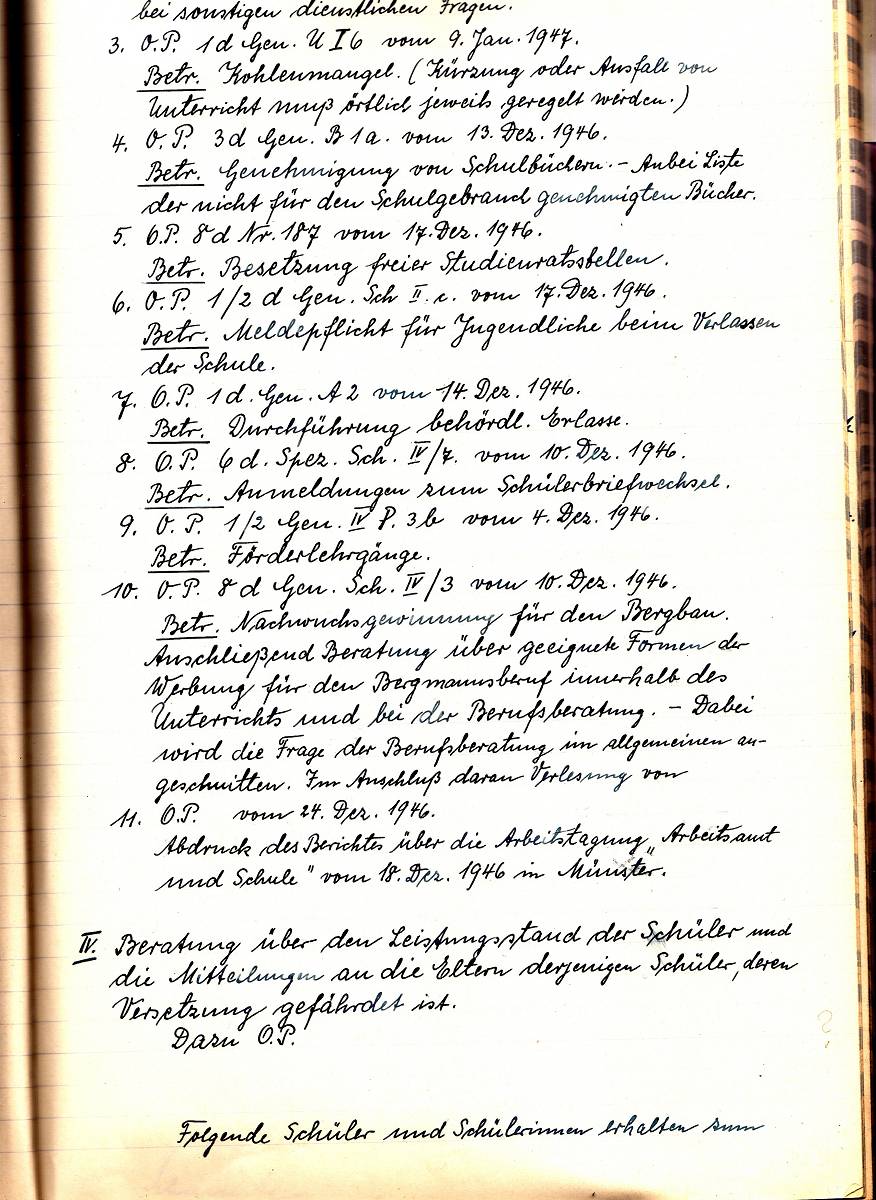 bei sonstigen dienstlichen Fragen.
3. O.P. 1d Gen. U I 6 vom 9. Jan. 1947.
Betr. Kohlenmangel. (Kürzung oder Ausfall von
Unterricht muß örtlich jeweils geregelt werden.)
4. O.P. 3d Gen. B 1a. vom 13. Dez. 1946.
Betr. Genehmigung von Schulbüchern. – Anbei Liste
der nicht für den Schulgebrauch genehmigten Bücher.
5. O.P. 8d Nr. 187 vom 17. Dez. 1946.
Betr. Besetzung freier Studienratsstellen.
6. O.P. 1/2 d Gen. Sch II. c. vom 17. Dez. 1946.
Betr. Meldepflicht für Jugendliche beim Verlassen
der Schule.
7. O.P. 1d. Gen. A 2 vom 14. Dez. 1946.
Betr. Durchführung behördl. Erlasse.
8. O.P. 6d. Spez. Sch. IV/7. vom 10. Dez. 1946.
Betr. Anmeldungen zum Schülerbriefwechsel.
9. O.P. 1/2 Gen. IV P. 3b vom 4. Dez. 1946.
Betr. Förderlehrgänge.
10. O.P. 8d Gen. Sch. IV/3 vom 10. Dez. 1946.
Betr. Nachwuchsgewinnung für den Bergbau.
Anschließend Beratung über geeignete Formen der
Werbung für den Bergmannsberuf innerhalb des
Unterrichts und bei der Berufsberatung. – Dabei
wird die Frage der Berufsberatung im allgemeinen an-
geschnitten. Im Anschluß daran Verlesung von
11. O.P. vom 24. Dez. 1946.
Abdruck des Berichtes über die Arbeitstagung „Arbeitsamt
und Schule" vom 18. Dez. 1946 in Münster.
IV. Beratung über den Leistungsstand der Schüler und
die Mitteilungen an die Eltern derjenigen Schüler, deren
Versetzung gefährdet ist.
Dazu O.P.
?
Folgende Schüler und Schülerinnen erhalten zum